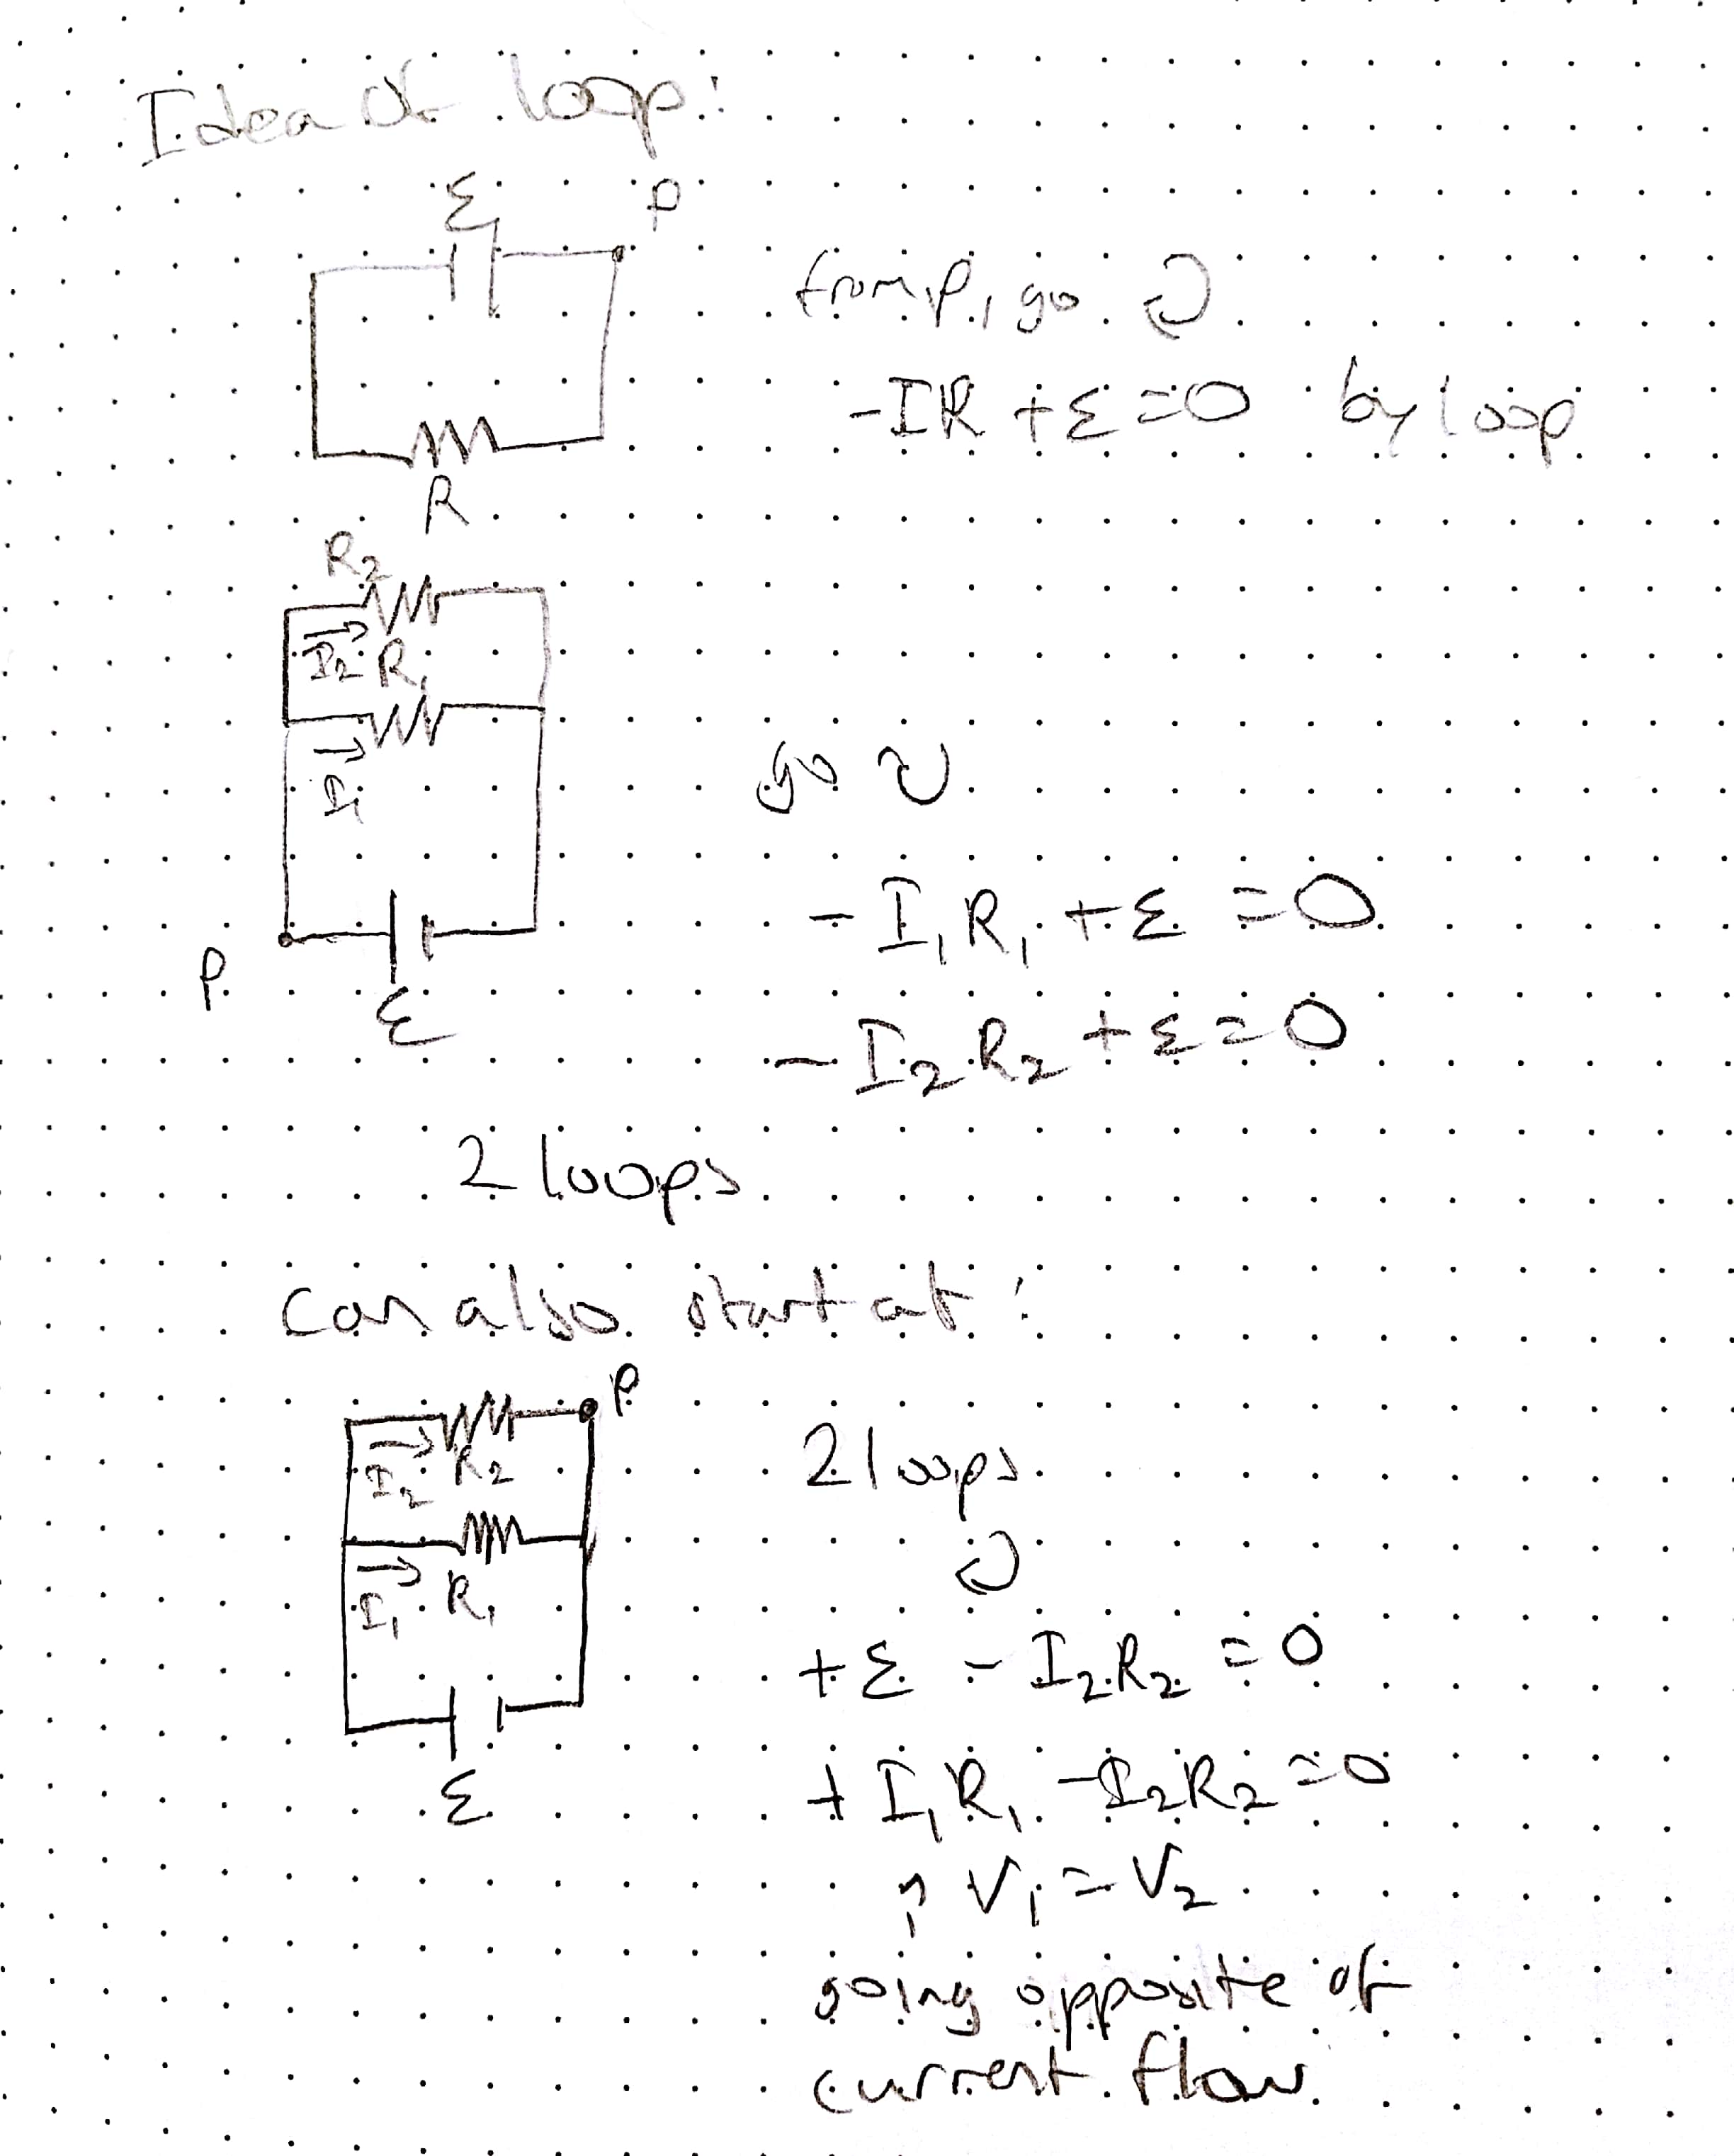 Idea of loop:
ε
P
from P, go ↻
-IR + ε = 0 by loop
R
R₂
I₂ R₁
I₁
go ↻
-I₁R₁ + ε = 0
P
ε
-I₂R₂ + ε = 0
2 loops
can also start at:
P
I₂ R₂
2 loops
↻
I₁ R₁
+ε - I₂R₂ = 0
ε
+I₁R₁ - I₂R₂ = 0
↑ V₁ = V₂
going opposite of
current flow